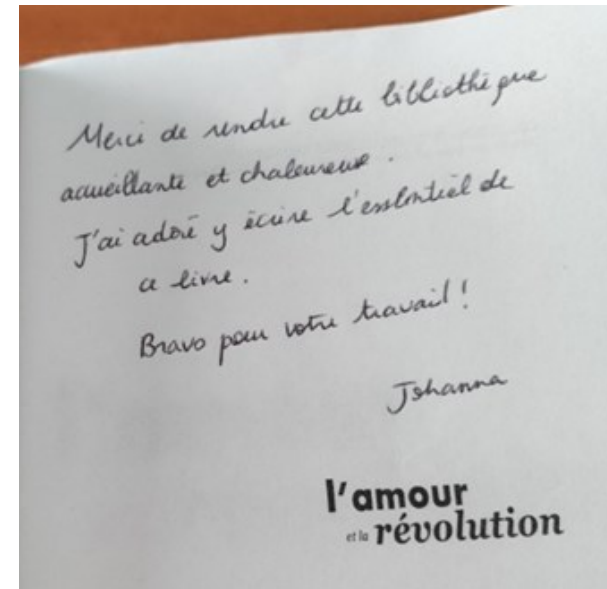 Merci de rendre cette bibliothèque
accueillante et chaleureuse.
J'ai adoré y écrire l'essentiel de
ce livre.
Bravo pour votre travail !
Johanna
l'amour
et la révolution